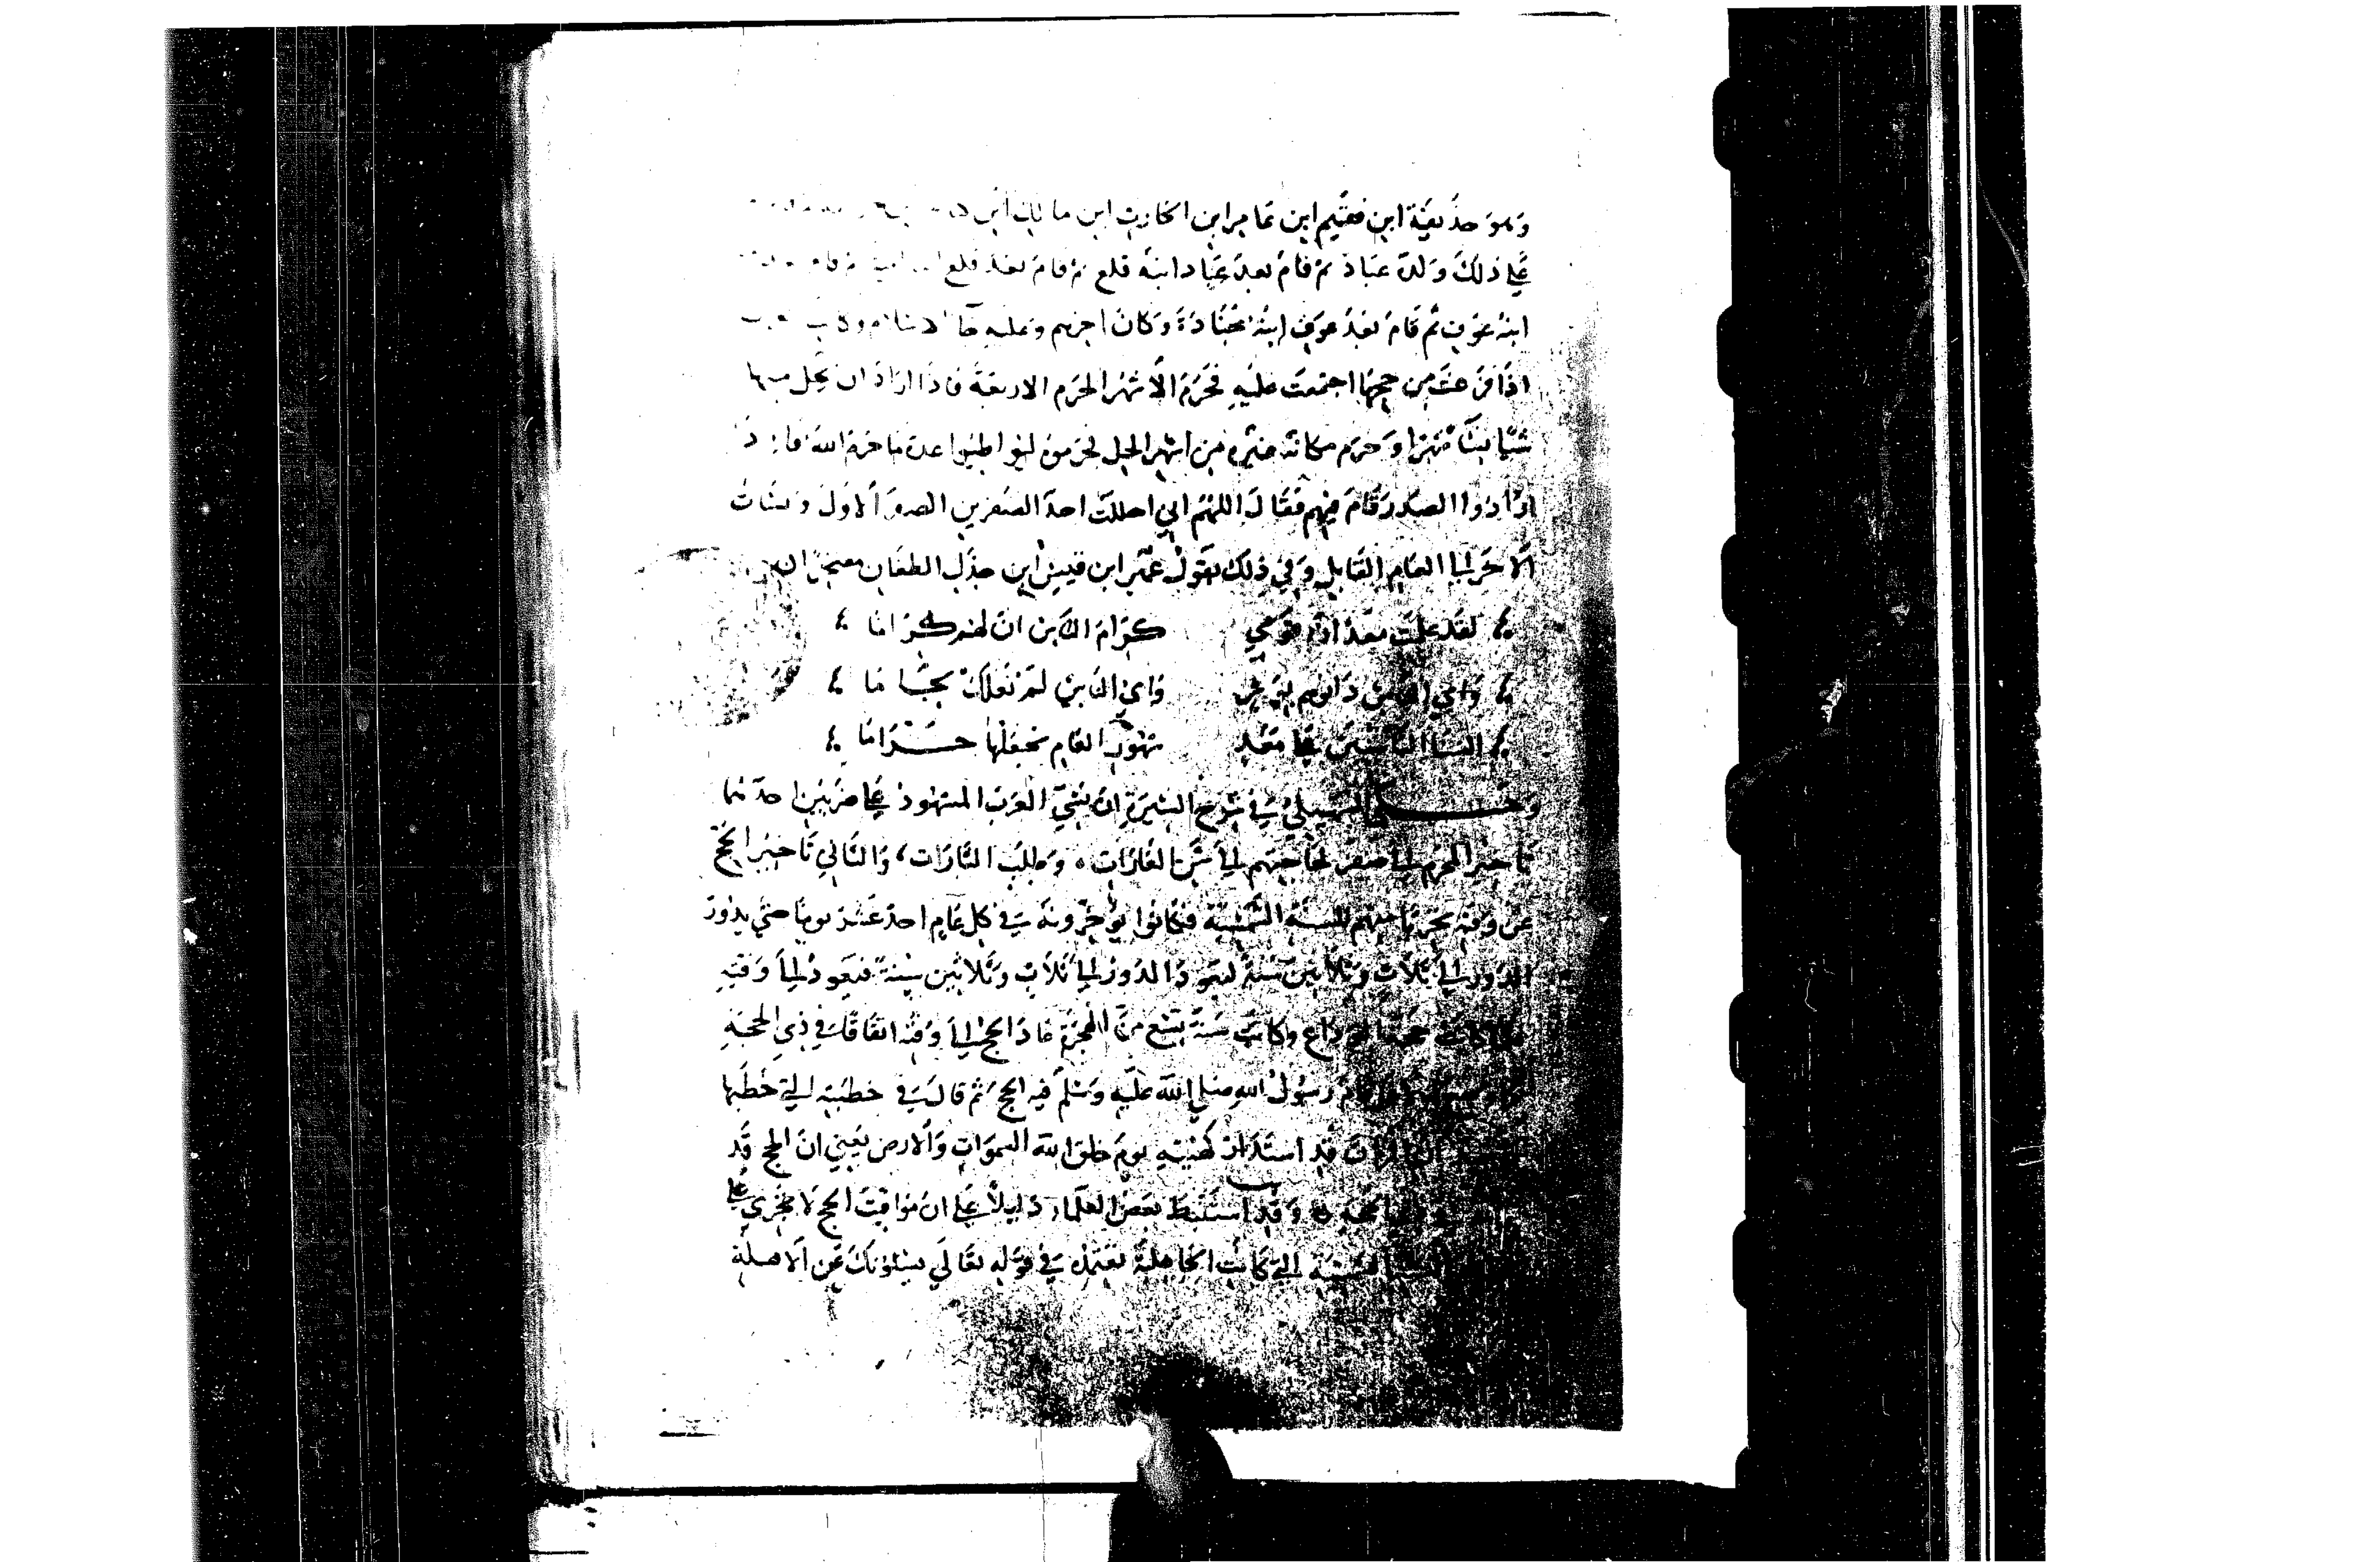 وهو حذيفة ابن فقيم ابن عامر ابن الحارث ابن مالك ابن
علي ذلك ولده عباد ثم قام بعد عباد ابنه قلع ثم قام بعد قلع
ابنه عوف ثم قام بعد عوف ابنه جنادة وكان اخرهم وعليه
اذا فرغت من حجها اجتمعت عليه فحرم الاشهر الحرم الاربعة فاذا اراد ان يحل منها
شيا مكانه من اشهر الحل ليواطيوا عدة ما حرم الله
ارادوا الصدر قام فيهم فقال اللهم اني احللت احد الصفرين الصفر الاول ونسات
الاخر الي العام القابل وفي ذلك يقول عمير ابن قيس ابن جذل الطعان
لقد علمت معد ان قومي كرام الناس ان لهم كراما
واي الناس واي الناس لم نعلك لجاما
السنا الناسيين علي معد شهور العام نجعلها حراما
وحكي السهيلي في شرح السيرة ان نسي العرب الشهور علي ضربين احدهما
تاخير المحرم الي صفر لحاجتهم الي شن الغارات، وطلب الثارات، والثاني تاخير الحج
عن وقته تحريا منهم للسنة الشمسية فكانوا يؤخرونه في كل عام احد عشر يوما حتي يدور
الدور الي ثلاث وثلاثين سنة الدور الي ثلاث وثلاثين سنة فيعود الي وقته
فلما كانت حجة الوداع وكانت سنة تسع من الهجرة عاد الحج الي وقته اتفاقا في ذي الحجة
رسول الله صلي الله عليه وسلم فيه الحج ثم قال في خطبته التي خطبها
قد استدار كهيئته يوم خلق الله السموات والارض يعني ان الحج قد
وقد استنبط بعض العلماء دليلا علي ان مواقيت الحج لا تجري علي
التي كانت الجاهلية تعتمد في قوله تعالي يسئلونك عن الاهلة